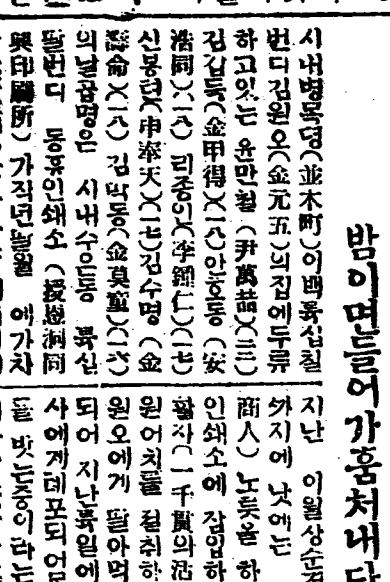 밤이면들어가훔처내다
시내병목뎡(並木町)이백륙십칠
번디김원오(金元五)의집에두류
하고잇는 윤만쳘(尹萬喆)(二三)
김갑득(金甲得)(一八)안호동(安
浩同)(一八)리종인(李鍾仁)(一七)
신봉텬(申奉天)(一七)김수명(金
壽命)(一八) 김막동(金莫童)(一六)
의날곱명은 시내수은동 륙십
팔번디 동흥인쇄소(授恩洞同
興印刷所)가직년팔월 에가차
지난 이월상순
外지에 낫에는
商人) 노릇을 하
인쇄소에 잠입하
활자(一千貫의活
원어치를 절취하
원오에게 팔아먹
되어 지난륙일에
사에게톄포되어
를 밧는중이다는